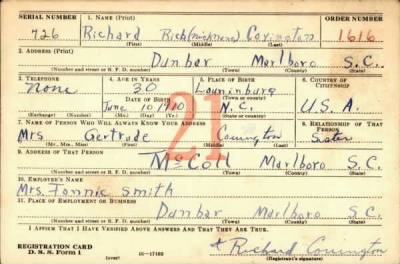 SERIAL NUMBER 1. NAME (Print) ORDER NUMBER
726 Richard Rich (nickname) Covington 1616
(First) (Middle) (Last)
2. ADDRESS (Print)
Dunbar Marlboro S.C.
(Number and street or R. F. D. number) (Town) (County) (State)
3. TELEPHONE 4. AGE IN YEARS 5. PLACE OF BIRTH 6. COUNTRY OF CITIZENSHIP
None 30 Laurinburg
DATE OF BIRTH
June 10 1910 N.C. U.S.A.
(Exchange) (Number) (Mo.) (Day) (Yr.) (State or country)
21
7. NAME OF PERSON WHO WILL ALWAYS KNOW YOUR ADDRESS 8. RELATIONSHIP OF THAT PERSON
Mrs Gertrude Covington Sister
(Mr., Mrs., Miss) (First) (Middle) (Last)
9. ADDRESS OF THAT PERSON
McColl Marlboro S.C.
(Number and street or R. F. D. number) (Town) (County) (State)
10. EMPLOYER'S NAME
Mrs. Fannie Smith
11. PLACE OF EMPLOYMENT OR BUSINESS
Dunbar Marlboro S.C.
(Number and street or R. F. D. number) (Town) (County) (State)
I AFFIRM THAT I HAVE VERIFIED ABOVE ANSWERS AND THAT THEY ARE TRUE.
REGISTRATION CARD
D. S. S. Form 1 (over) Richard Covington
(Registrant's signature)